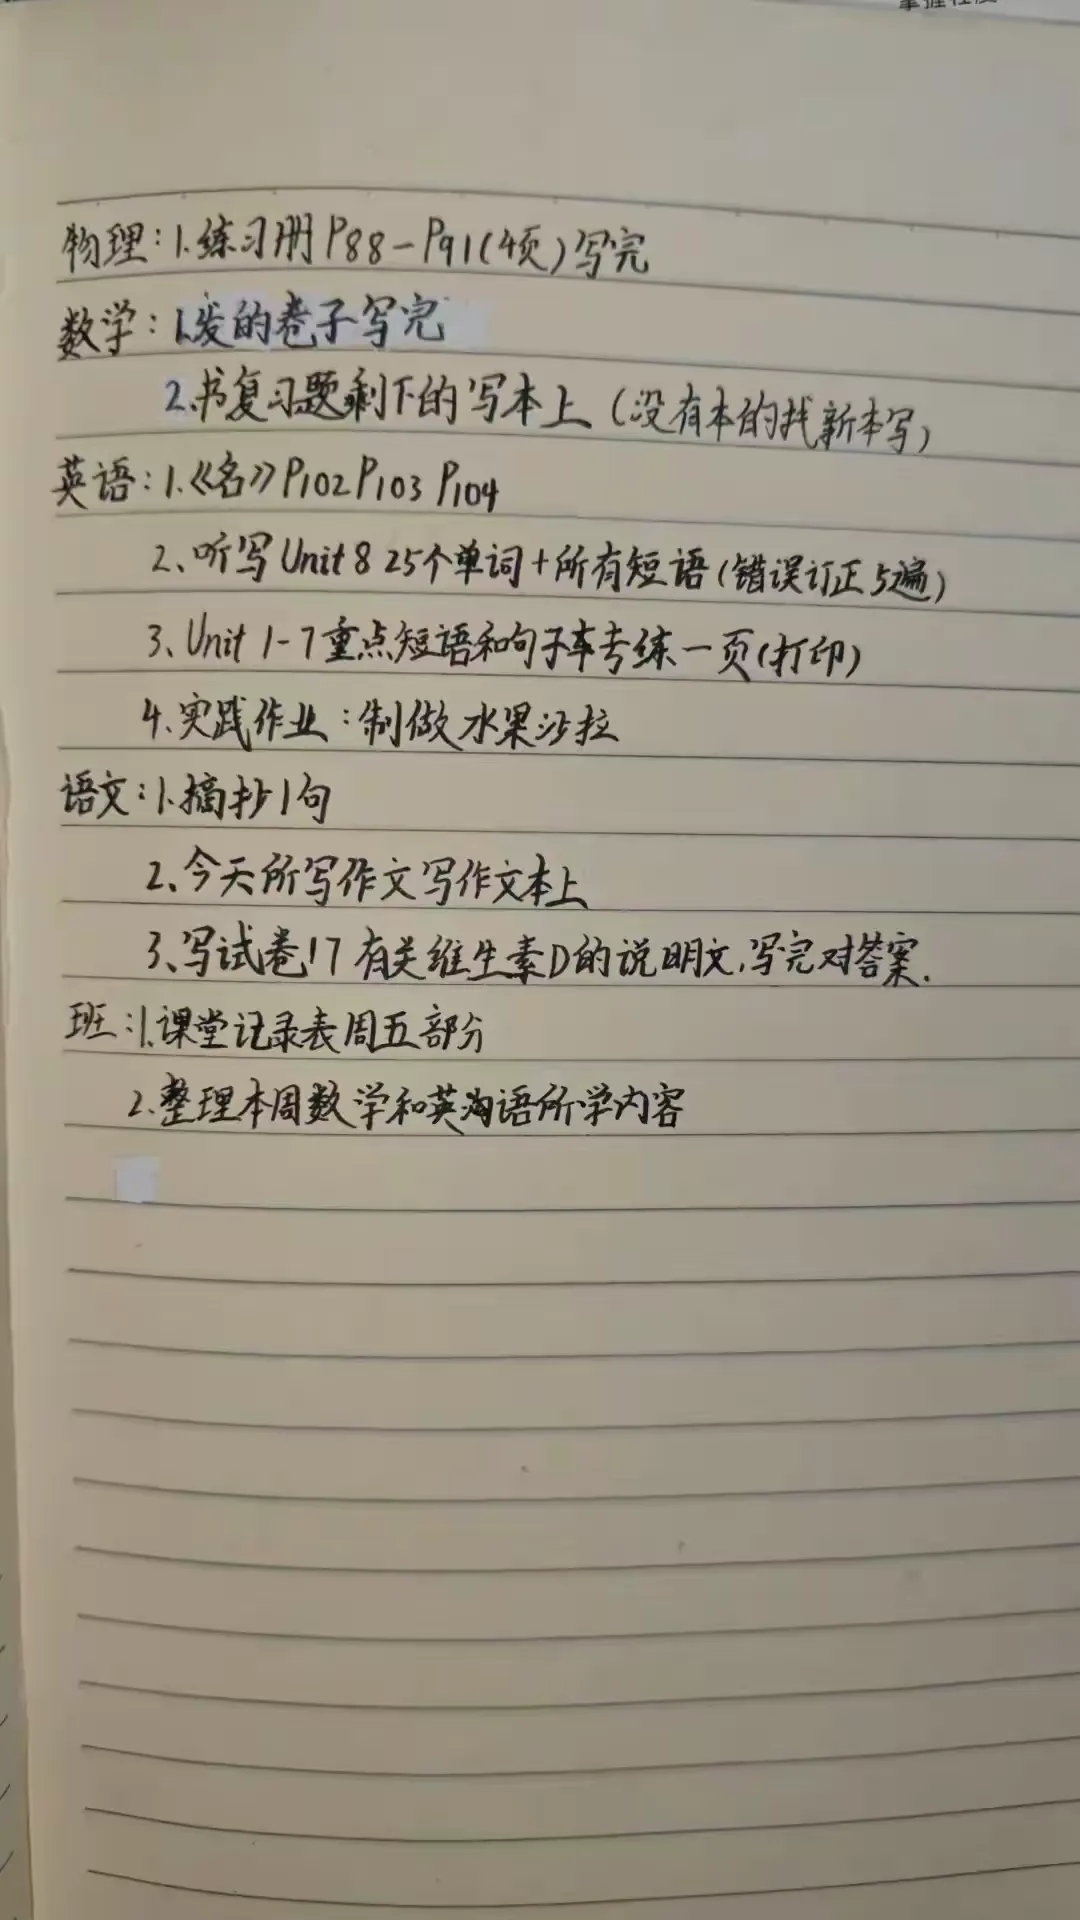 物理：1.练习册P88－P91（4页）写完
数学：1.发的卷子写完
2.书复习题剩下的写本上（没有本的找新本写）
英语：1.《名》P102 P103 P104
2、听写Unit 8 25个单词+所有短语（错误订正5遍）
3、Unit 1-7重点短语和句子专练一页（打印）
4.实践作业：制做水果沙拉
语文：1.摘抄1句
2、今天所写作文写作文本上
3、写试卷17有关维生素D的说明文，写完对答案.
班：1.课堂记录表周五部分
2.整理本周数学和英语所学内容